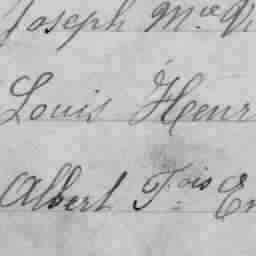 Joseph M.ce Vi
Louis Henr
Albert F.ois Er